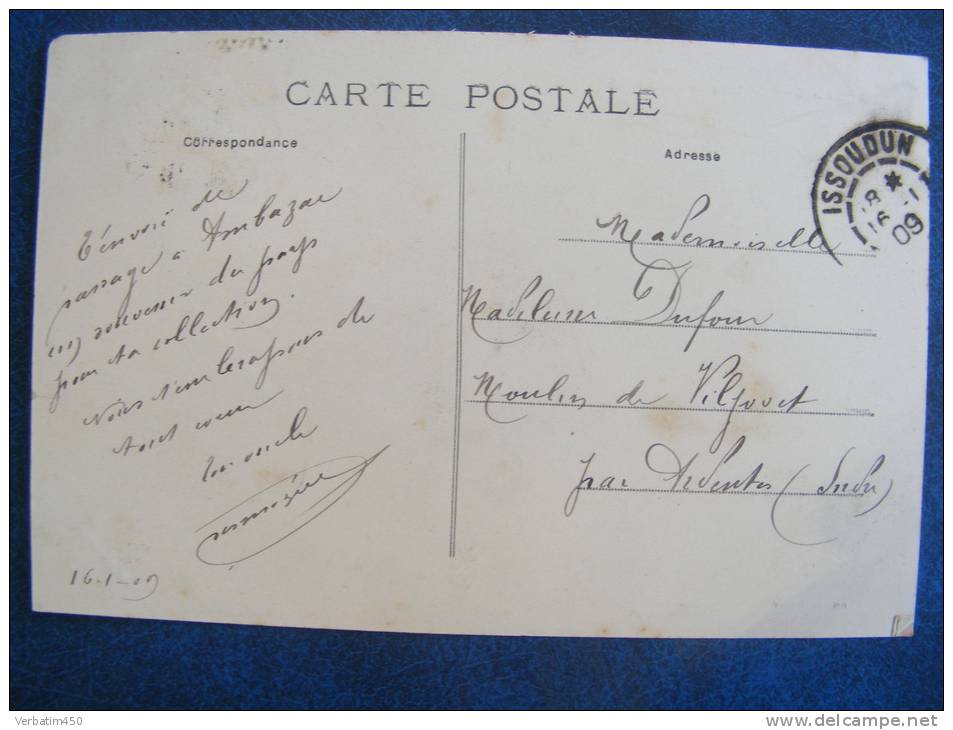 CARTE POSTALE
Correspondance
T'envoie de
passage à Ambazac
un souvenir du pays
pour ta collection.
Nous t'embrassons de
tout coeur
Ton oncle
16-1-09
Adresse
Mademoiselle
Madeleine Dufour
Moulin de
par Ardentes (Indre)
ISSOUDUN
*
16 - 1
09
Verbatim450
www.delcampe.net